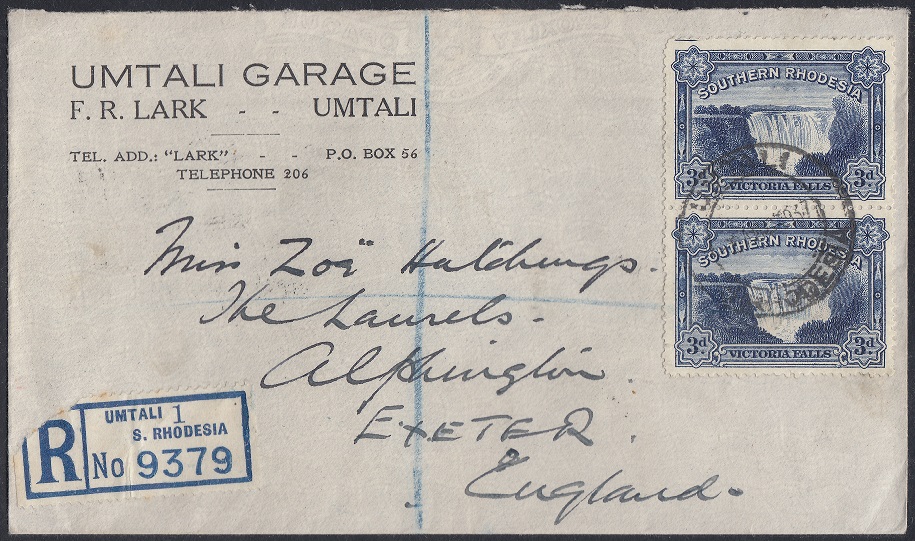 UMTALI GARAGE
F. R. LARK - - UMTALI
TEL. ADD.: "LARK" - - P.O. BOX 56
TELEPHONE 206
SOUTHERN RHODESIA
3d VICTORIA FALLS 3d
SOUTHERN RHODESIA
3d VICTORIA FALLS 3d
Miss Zoë Hutchings.
The Laurels.
Alphington.
EXETER.
England.
UMTALI 1
S. RHODESIA
R No 9379